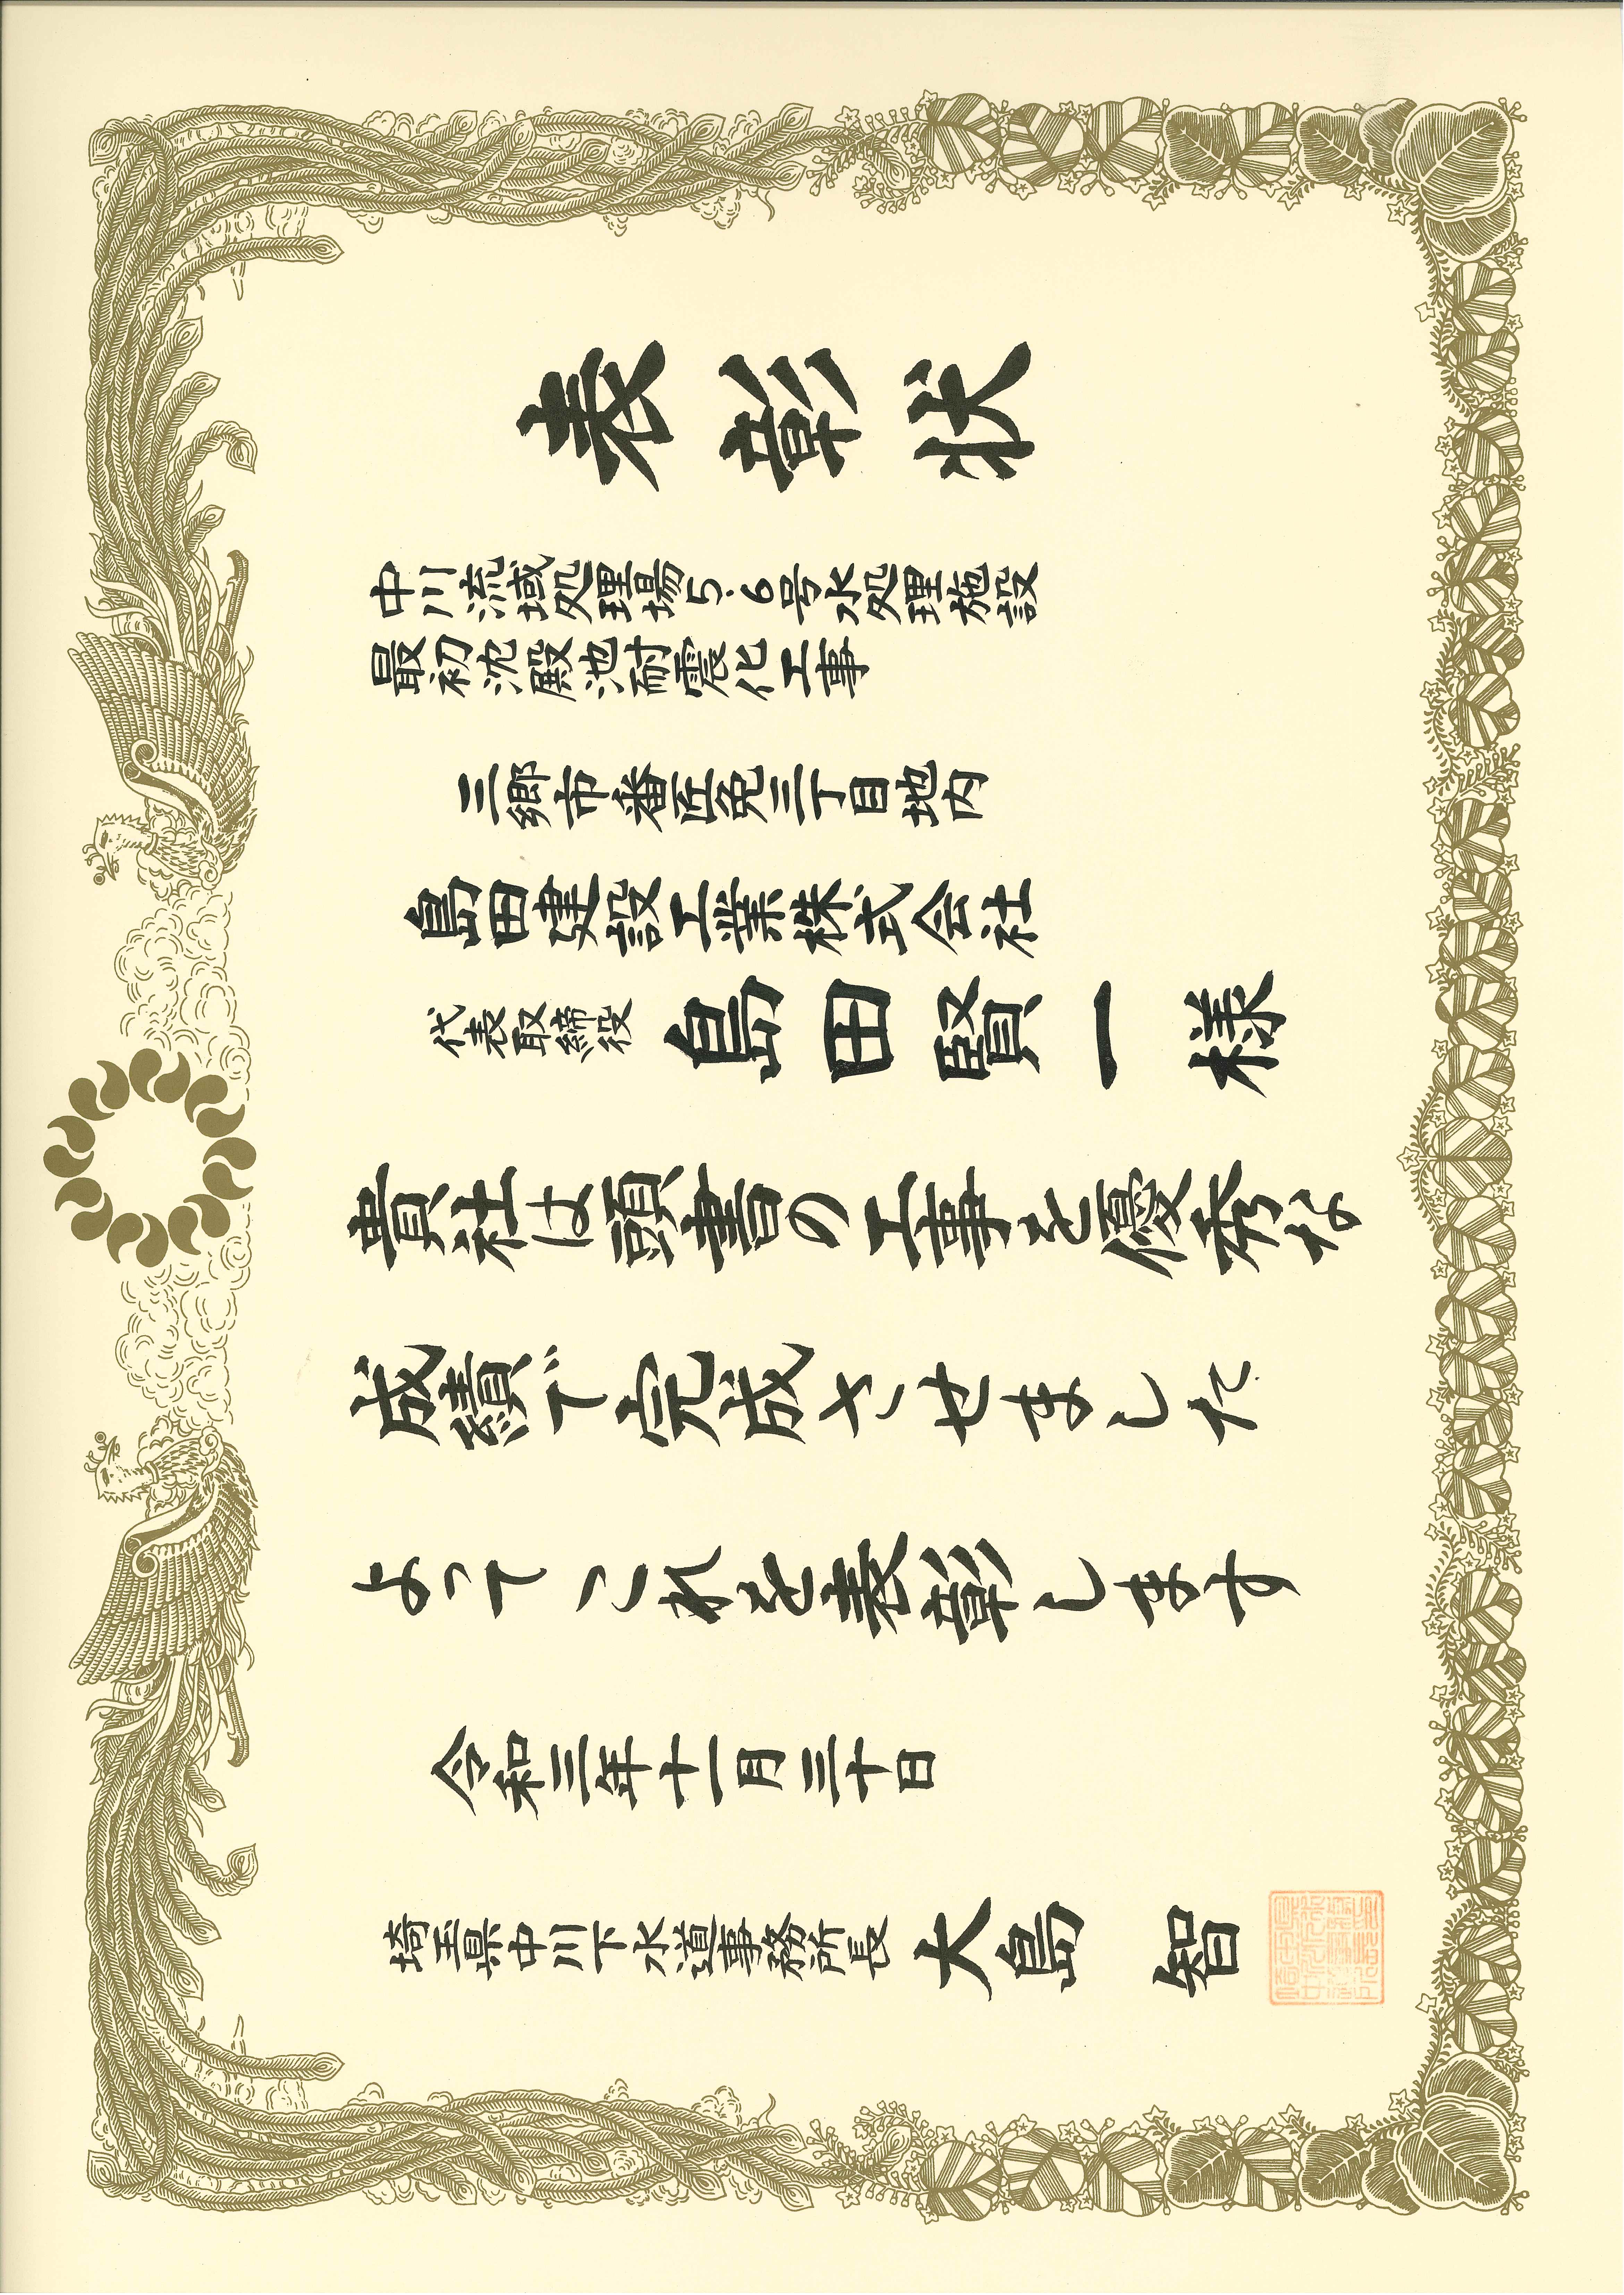 表彰状
中川流域処理場5・6号水処理施設
最初沈殿池耐震化工事
三郷市番匠免三丁目地内
島田建設工業株式会社
代表取締役 島田賢一様
貴社は頭書の工事を優秀な
成績で完成させました
よってこれを表彰します
令和三年十一月三十日
埼玉県中川下水道事務所長 大島 智